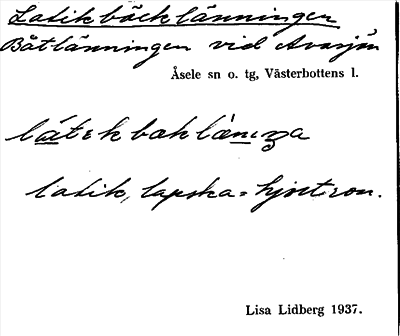 Latikbäcklänningen
Båtlänningen vid Avasjön
Åsele sn o. tg, Västerbottens l.
latik, lapska = hjortron.
Lisa Lidberg 1937.